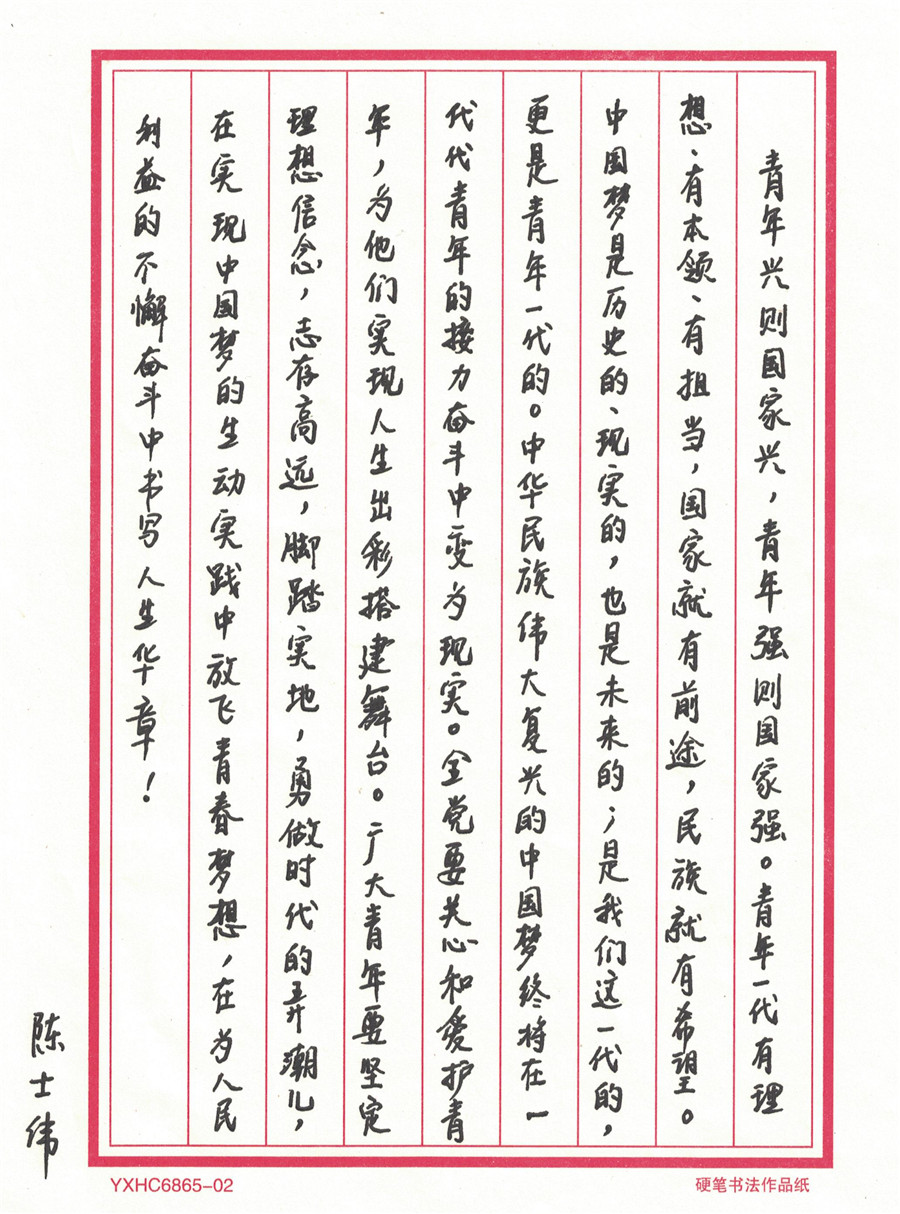 青年兴则国家兴，青年强则国家强。青年一代有理
想、有本领、有担当，国家就有前途，民族就有希望。
中国梦是历史的、现实的，也是未来的；是我们这一代的，
更是青年一代的。中华民族伟大复兴的中国梦终将在一
代代青年的接力奋斗中变为现实。全党要关心和爱护青
年，为他们实现人生出彩搭建舞台。广大青年要坚定
理想信念，志存高远，脚踏实地，勇做时代的弄潮儿，
在实现中国梦的生动实践中放飞青春梦想，在为人民
利益的不懈奋斗中书写人生华章！
陈士伟
YXHC6865-02
硬笔书法作品纸